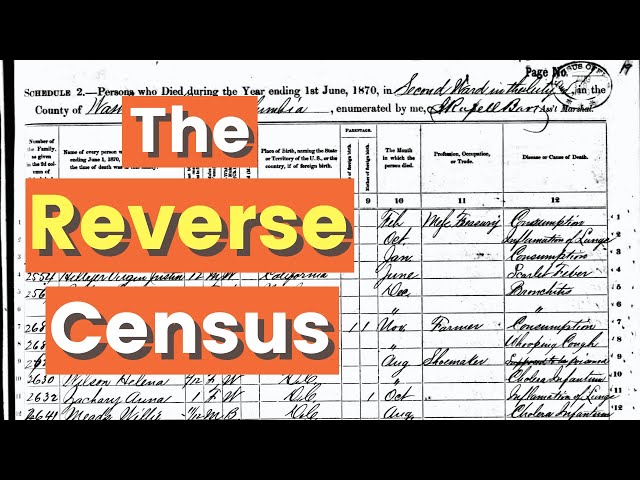 Page No.
SCHEDULE 2.—Persons who Died during the Year ending 1st June, 1870, in Second Ward in the City, in the
County of Was umbia, enumerated by me, Ass't Marshal.
The
Reverse
Census
Number of the Family, as given in the 2d column of
Name of every person ending June 1, 1870, the time of death was
Place of Birth, naming the State or Territory of the U. S., or the country, if of foreign birth.
PARENTAGE.
Father of foreign birth.
Mother of foreign birth.
The Month in which the person died.
Profession, Occupation, or Trade.
Disease or Cause of Death.
9 10 11 12
1 Feb Treasury Consumption 1
2 Oct Inflamation of Lungs 2
3 Jan Consumption 3
4 2554 12 W California June Scarlet Fever 4
5 256 Dec Bronchitis 5
" " 6
7 268 1 1 Nov Farmer Consumption 7
268 " Whooping Cough 8
9 Aug Shoemaker Supposed to be poisoned 9
10 2630 Wilson Helena 7/12 F W D.C. " Cholera Infantum 10
11 2632 Zachary Anna 1 F W D.C. 1 Oct Inflamation of Lungs 11
12 2641 Meads Willie /12 M B D.C. Aug Cholera Infantum 12